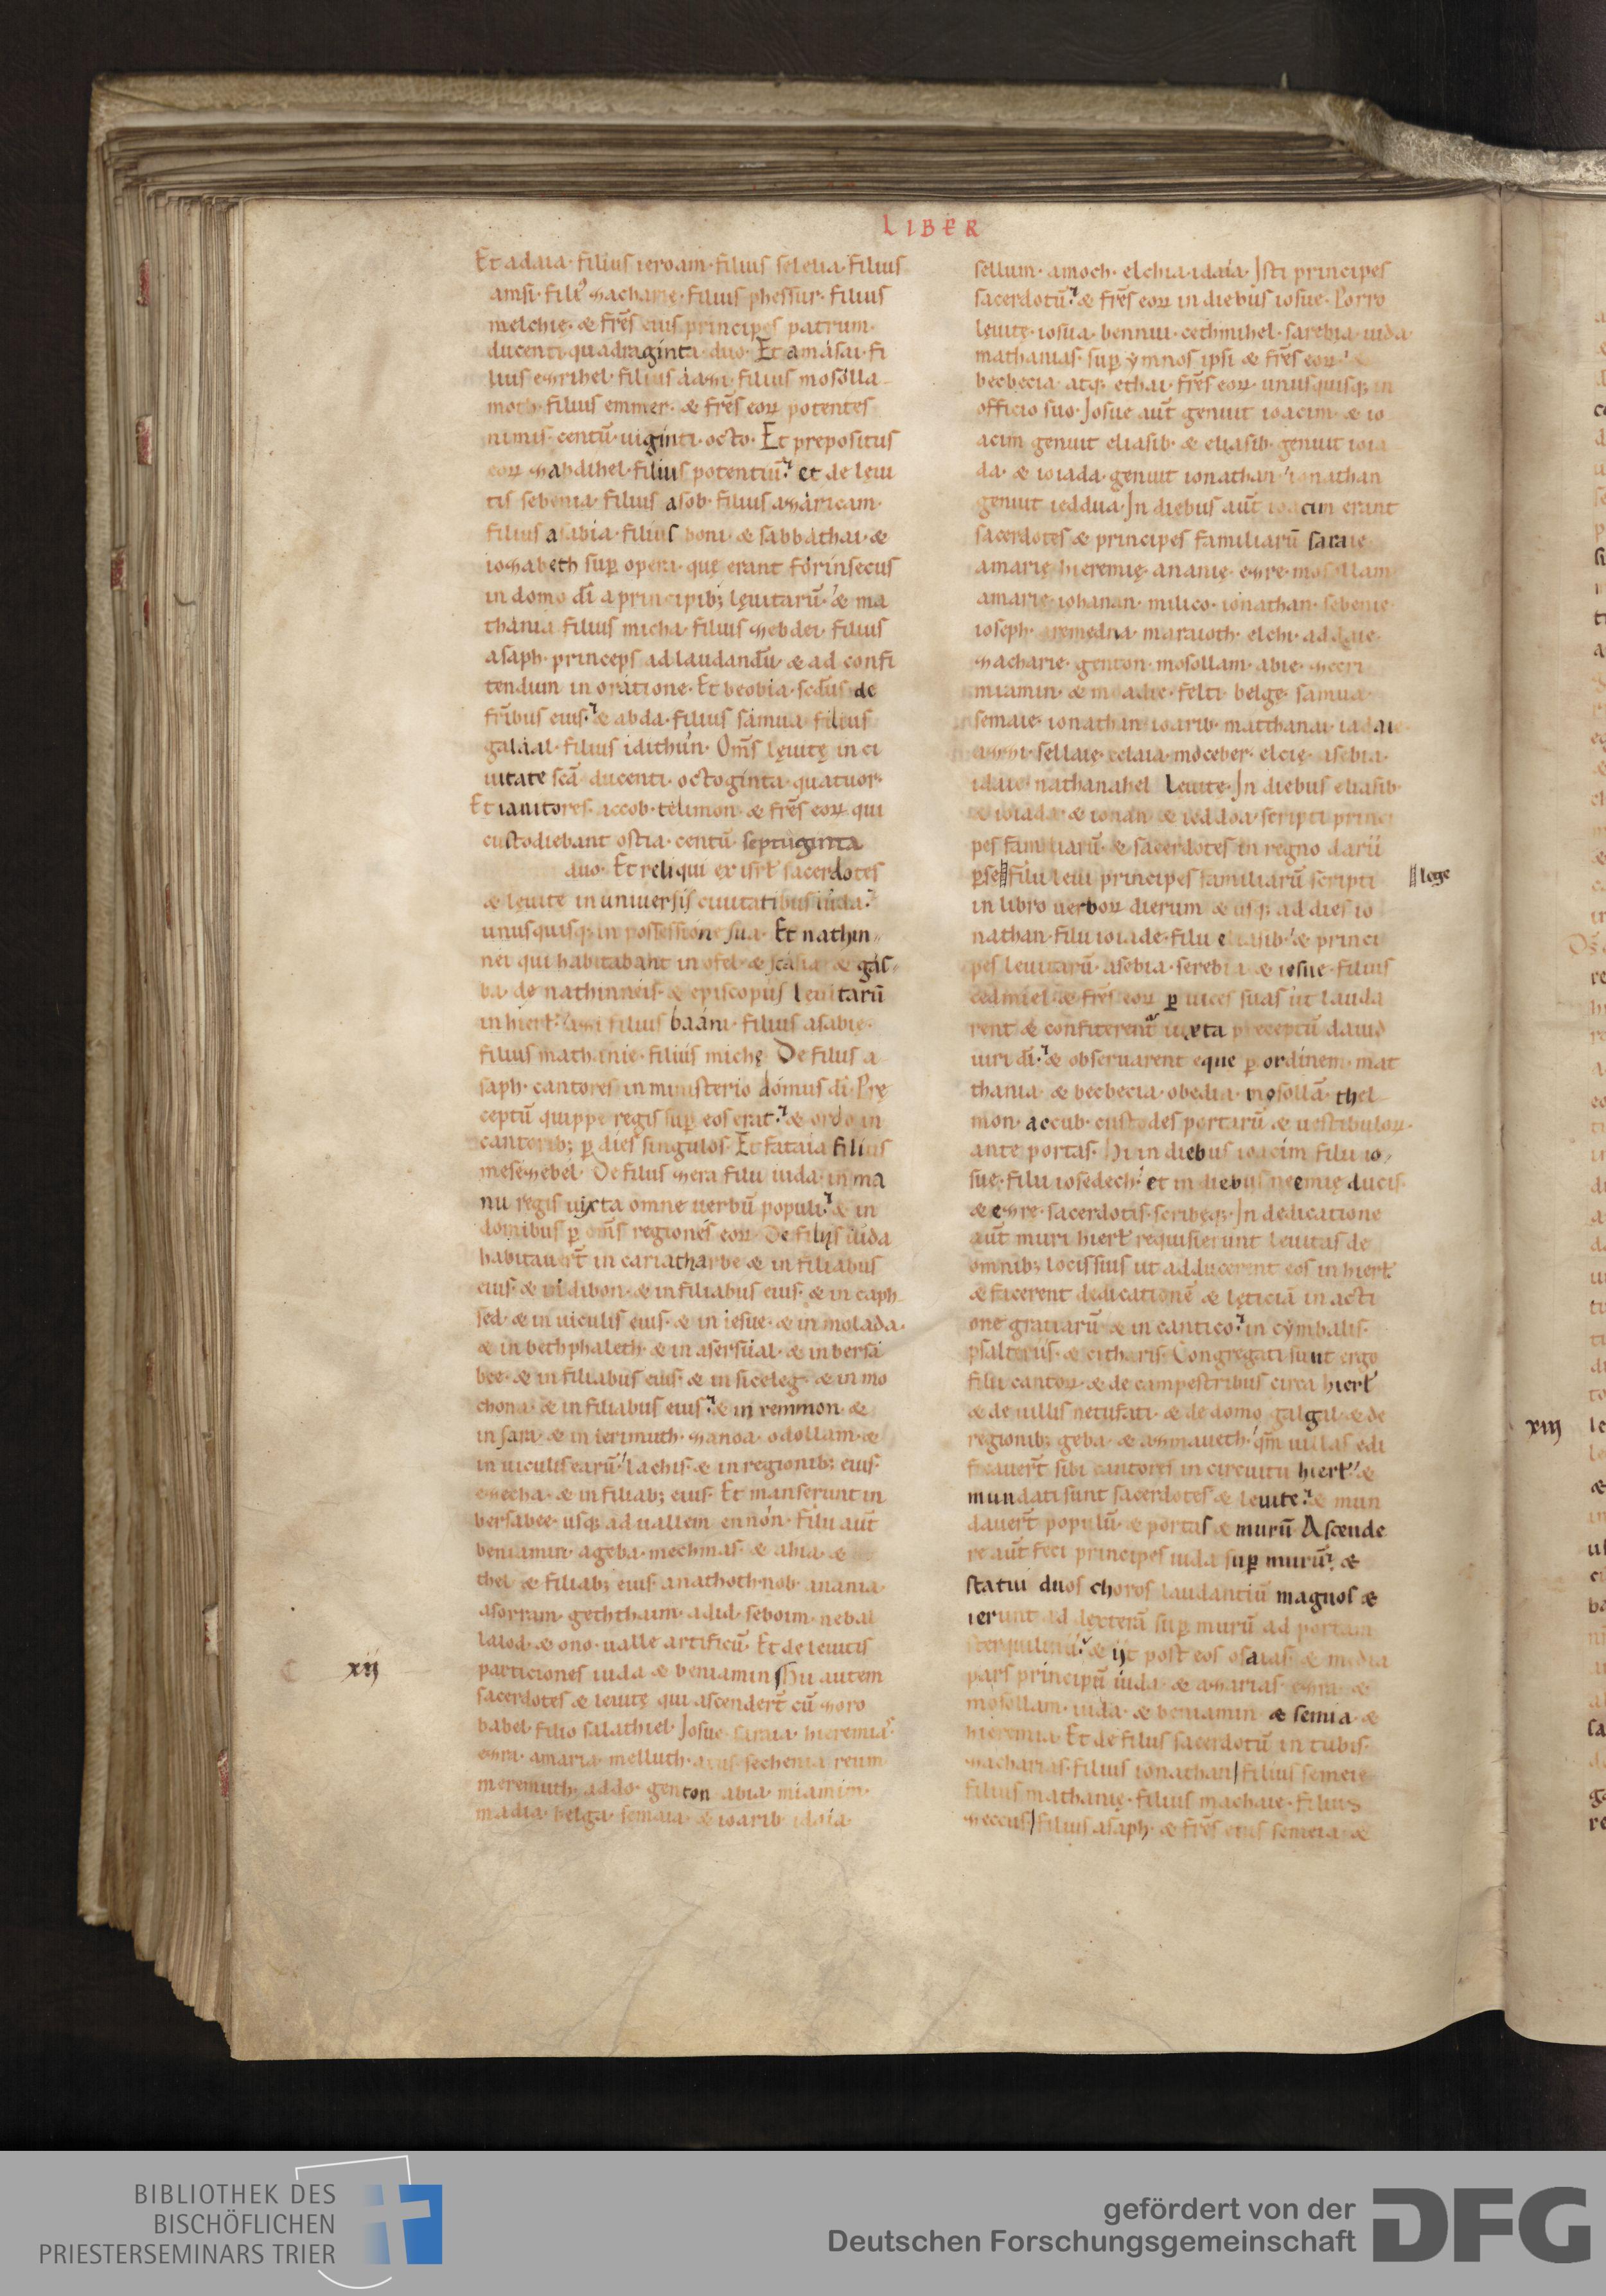 LIBER
Et adaia· filius ieroam· filius felelia· filius
amsi· fili᾽ zacharie· filius phessur· filius
melchie· & fr̄es eius principes patrum·
ducenti quadraginta duo· Et amasai· fi
lius ezrihel· filius aazi· filius mosolla
moth· filius emmer· & fr̄es eoꝝ potentes
nimis· centū· uiginti· octo· Et prepositus
eoꝝ zabdihel· filius potentiū· et de leui
tis sebenia· filius asob· filius azaricam·
filius asabia· filius boni· & sabbathai· &
iozabeth suꝑ opera· quę erant forinsecus
in domo dī a principib; lęuitarū· & ma
thania filius micha· filius zebdei· filius
asaph· princeps ad laudandū· & ad confi
tendum in oratione· Et becbia· sedus de
fr̄ibus eius· & abda· filius samua· filius
galaal· filius idithun· Om̄s lęuitę in ci
uitate scā ducenti· octoginta· quatuor·
Et ianitores· accob· telimon· & fr̄es eoꝝ qui
custodiebant ostia· centū· septuginta
duo· Et reliqui ex isrł sacerdotes
& lęuite in uniuersis ciuitatibus iuda·
unusquisq; in possessione sua· Et nathin
nei qui habitabant in ofel· & scasia· & gas
ba de nathinneis· & episcopus leuitarū
in hierł· azi filius baani· filius asabię·
filius mathanie· filius michę De filiis a
saph· cantores in ministerio domus dī· Prę
ceptū quippe regis suꝑ eos erat· & ordo in
cantorib; ꝑ dies singulos· Et fataia filius
mesezebel· De filiis zera filii iuda· in ma
nu regis iuxta omne uerbū populi· & in
domibus ꝑ om̄s regiones eoꝝ De filiis iuda
habitauer̄t in cariatharbe & in filiabus
eius· & in dibon· & in filiabus eius· & in caph
sed· & in uiculis eius· & in iesue· & in molada·
& in bethphaleth· & in asersual· & in bersa
bee· & in filiabus eius· & in siceleg· & in mo
chona· & in filiabus eius· & in remmon· &
in sara· & in ierimuth· zanoa· odollam· &
in uiculis earū· lachis· & in regionib; eius·
ezecha· & in filiab; eius· Et manserunt in
bersabee· usq; ad uallem ennon· filii aut̄
beniamin· a geba· mechmas· & ahia· &
thel· & filiab; eius· anathoth· nob· anania·
asorram· geththaim· adid· seboim· nebal
lalod· & ono· ualle artificū· Et de leuitis
xij
particiones iuda & beniamin Hii autem
sacerdotes & leuitę qui ascender̄t cū zoro
babel· filio salathiel· Iosue· saraia· hieremia
ezra· amaria· melluth· accus· sechenia· reum
meremuth· addo· genton· abia· miamim·
madia· belga· semaia· & ioarib· idaia·
sellum· amoch· elchia· idaia· Isti principes
sacerdotū· & fr̄es eoꝝ in diebus iosue· Porro
lęuitę· iosua· bennui· cethmihel· sarebia· iuda·
mathanias· suꝑ ymnos ipsi & fr̄es eoꝝ· &
becbecia· atq; ethai· fr̄es eoꝝ· unusquisq; in
officio suo· Iosue aut̄ genuit ioacim· & io
acim genuit eliasib· & eliasib· genuit ioia
da· & ioiada· genuit ionathan· ionathan
genuit ieddua· In diebus aut̄ ioacim erant
sacerdotes & principes familiarū saraie
amarię· hieremię· ananie· ezre· mosollam
amarie· iohanan· milico· ionathan· sebenie·
ioseph· aremedna· maraioth· elchi· addaie·
zacharie· genton· mosollam· abie· zecri·
miamin· & moadie· felti· belgę· samua·
semaie· ionathan· ioarib· matthanai· iadaie·
azzi· sellaie· celaia· moceber· elcię· asebia·
idaie· nathanahel Leuite· In diebus eliasib·
& ioiada· & ionan· & ieddoa· scripti princi
pes familiarū· & sacerdotes in regno darii
ꝑse filii leui principes familiarū scripti
lege
in libro uerboꝝ dierum & usq; ad dies io
nathan· filii ioiade· filii eliasib· & princi
pes leuitarū· asebia· serebia· & iesue· filius
cedmiel· & fr̄es eoꝝ ꝑ uices suas ut lauda
rent & confiterent̄ iuxta preceptū dauid
uiri dī· & obseruarent eque ꝑ ordinem· mat
thania· & becbecia· obedia· mosollā· thel
mon· accub· custodes portarū & uestibuloꝝ·
ante portas· Hi in diebus ioacim filii io
sue· filii iosedech· et in diebus neemię ducis·
& ezre· sacerdotis· scribeq;· In dedicatione
aut̄ muri hierł requisierunt leuitas de
omnib; locis suis ut adducerent eos in hierł
& facerent dedicationē & lęticiā in acti
one gratiarū· & in cantico· in cymbalis·
psalteriis· & citharis· Congregati sunt ergo
filii cantoꝝ· & de campestribus circa hierł
& de uillis netufati· & de domo galgal· & de
regionib; geba· & azmaueth· qm̄ uillas edi
ficauer̄t sibi cantores in circuitu hierł· &
mundati sunt sacerdotes & leuite· & mun
dauer̄t populū· & portas & murū Ascende
re aut̄ feci principes iuda suꝑ murū· &
statui duos choros laudantiū magnos &
ierunt ad dexterā suꝑ murū ad portam
sterquilinii· & ijt post eos osaias· & media
pars principū iuda· & azarias· ezra· &
mosollam· iuda· & beniamin· & semia· &
hieremia· Et de filiis sacerdotū in tubis·
zacharias· filius ionathan filius semeię
filius mathanię· filius machaie· filius
zeccus filius asaph· & fr̄es eius semeia· &
xiij
BIBLIOTHEK DES
BISCHÖFLICHEN
PRIESTERSEMINARS TRIER
gefördert von der
Deutschen Forschungsgemeinschaft
DFG